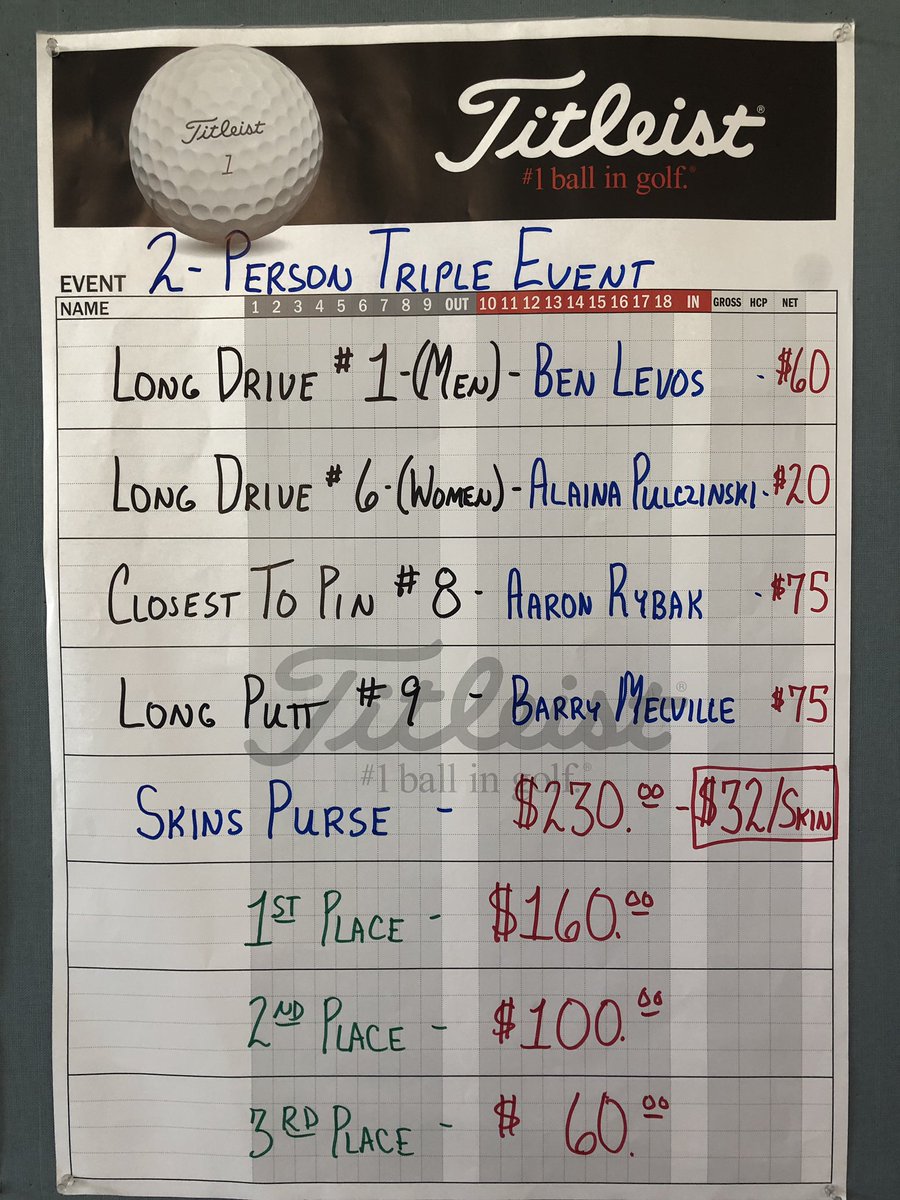 Titleist
1
Titleist®
#1 ball in golf.®
EVENT 2-PERSON TRIPLE EVENT
NAME 1 2 3 4 5 6 7 8 9 OUT 10 11 12 13 14 15 16 17 18 IN GROSS HCP NET
LONG DRIVE #1-(MEN)- BEN LEVOS - $60
LONG DRIVE #6-(WOMEN)- ALAINA PULCZINSKI- $20
CLOSEST TO PIN #8- AARON RYBAK - $75
LONG PUTT #9 - BARRY MELVILLE $75
Titleist®
#1 ball in golf.®
SKINS PURSE - $230.00 - $32/SKIN
1ST PLACE - $160.00
2ND PLACE - $100.00
3RD PLACE - $ 60.00